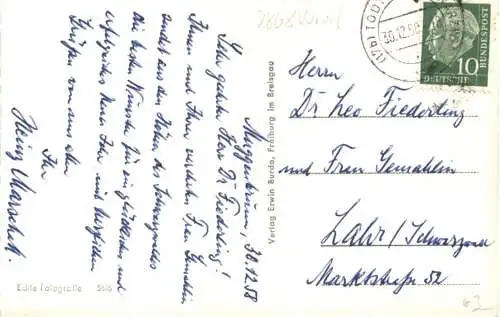 Muggenbrunn, 30.12.58
Sehr geehrter Herr Dr Fiederling!
Ihnen und Ihrer verehrten Frau Gemahlin
sendet aus den Höhen des Schwarzwaldes
die besten Wünsche für ein glückliches und
erfolgreiches Neues Jahr mit herzlichen
Grüßen von uns allen
Ihr
Heinz Marschall.
Echte Fotografie
Verlag Erwin Burda, Freiburg im Breisgau
(17b) TODT
30.12.58
DEUTSCHE BUNDESPOST
10
Herrn
Dr Leo Fiederling
und Frau Gemahlin
Lahr/Schwarzwald
Marktstraße 52